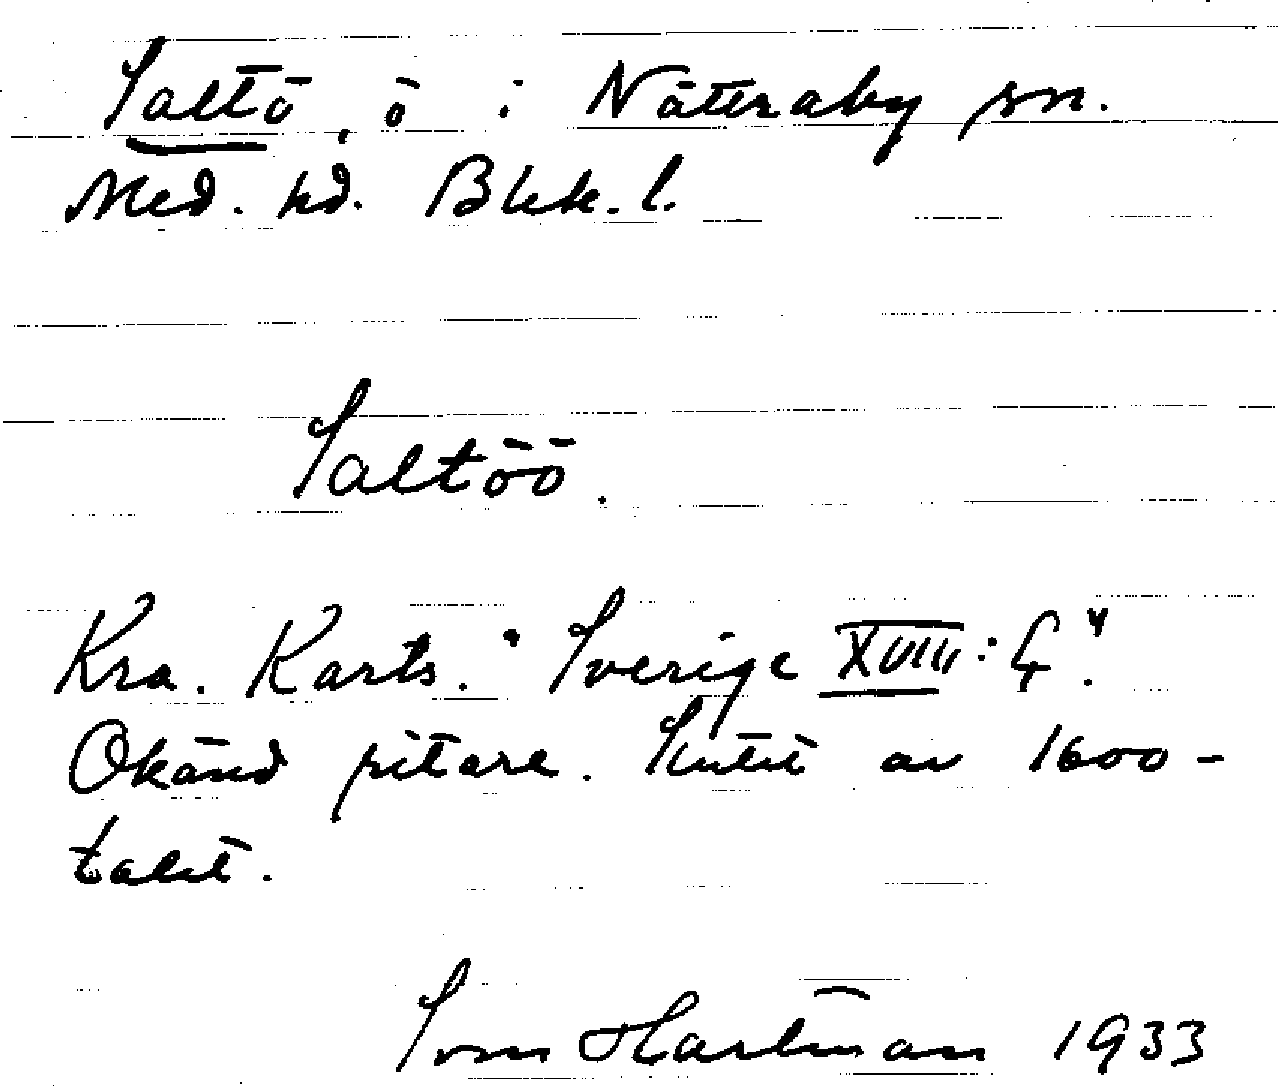 Saltö, ö i Nättraby sn.
Med. hd. Blek. l.
Saltöö.
Kra. Karts. "Sverige XVIII: 4."
Okänd ritare. Slutet av 1600-
talet.
Sven Hartman 1933